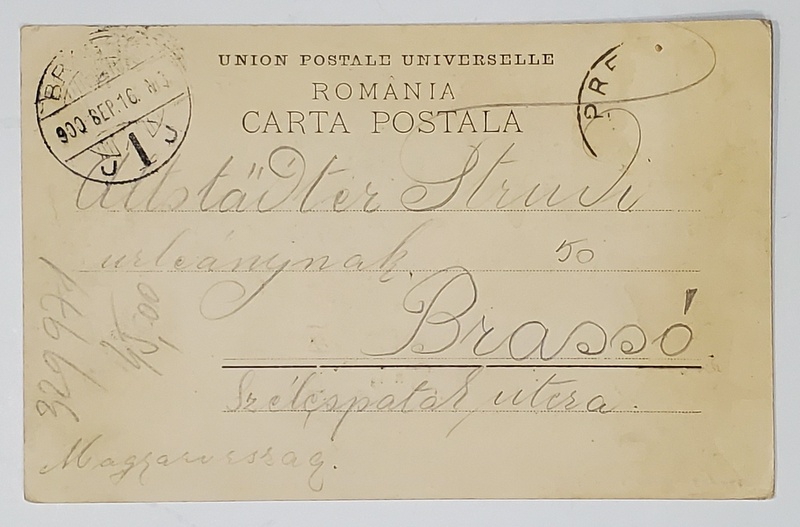 UNION POSTALE UNIVERSELLE
ROMÂNIA
CARTA POSTALA
BR
900 SEP. 16.
1
PRE
Altstädter Strudi
urleánynak. 50
Brassó.
Szélespatak utcza.
Magyarország.
329971
45,00